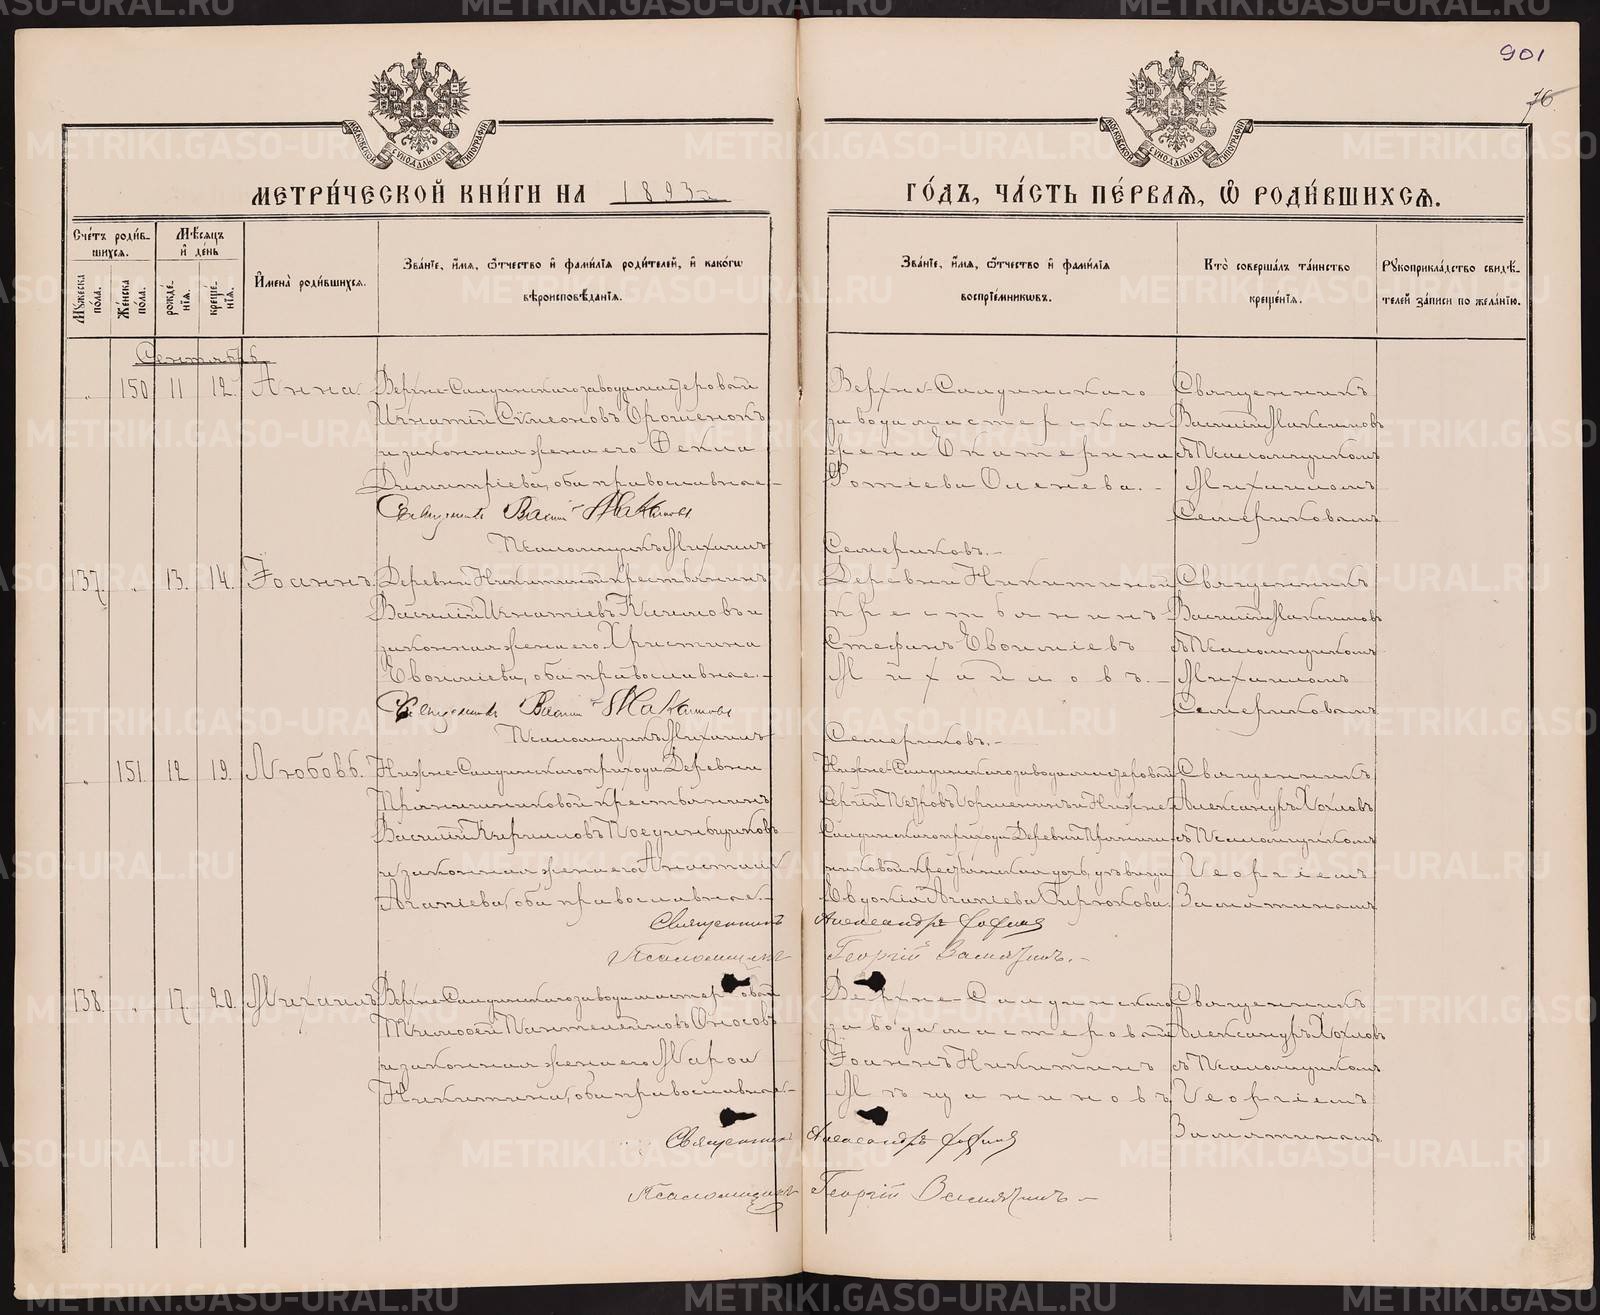 901
76
МОСКОВСКОЙ СѴНОДАЛЬНОЙ ТИПОГРАФІИ
МОСКОВСКОЙ СѴНОДАЛЬНОЙ ТИПОГРАФІИ
МЕТРИ́ЧЕСКОЙ КНИ́ГИ НА 1893 го
ГО́ДЪ, ЧА́СТЬ ПЕ́РВАѦ, Ѽ РОДИ́ВШИХСѦ.
Сче́тъ роди́в-
шихсѧ.
Мѣ́сѧцъ
и҆ де́нь
Мꙋ́жеска пола.
Же́нска пола.
рожде́-нїѧ.
креще́-нїѧ.
И҆мена̀ роди́вшихсѧ.
Зва́нїе, и҆́мѧ, ѻ҆́тчество и҆ фами́лїѧ роди́телей, и҆ како́гѡ
вѣроисповѣ́данїѧ.
Зва́нїе, и҆́мѧ, ѻ҆́тчество и҆ фами́лїѧ
воспрїе́мникѡвъ.
Кто̀ соверша́лъ та́инство
креще́нїѧ.
Рꙋкоприкла́дство свидѣ́-
телей за́писи по жела́нїю.
Сентябрь
" 150 11 12. Анна.
Верхне-Салдинскаго завода мастеровой
Игнатій Сѵмеоновъ Ерошенокъ
и законная жена его Ѳекла
Димитріева, оба православные.-
Священникъ Василій Максимовъ
Псаломщикъ Михаилъ Семериковъ.-
Верхне-Салдинскаго
завода мастерская
жена Екатерина
Фотіева Оленева.-
Священникъ
Василій Максимовъ
съ Псаломщикомъ
Михаиломъ
Семериковымъ
137. " 13. 14. Іоаннъ.
Деревни Никитиной крестьянинъ
Василій Игнатіевъ и
законная жена его Христина
оба православные.-
Священникъ Василій Максимовъ
Псаломщикъ Михаилъ Семериковъ.-
Деревни Никитиной
крестьянинъ
Стефанъ
Михайловъ.-
Священникъ
Василій Максимовъ
съ Псаломщикомъ
Михаиломъ
Семериковымъ
" 151. 12 19. Любовь.
Нижне-Салдинскаго прихода Деревни
Прянишниковой крестьянинъ
Василій Кирилловъ
и законная жена его Анастасія
Агапіева, оба православные.-
Священникъ Александръ Хохловъ
Псаломщикъ Георгій Замятинъ.-
Нижне-Салдинскаго завода мастеровой
Сергій Петровъ и Нижне-
Салдинскаго прихода Деревни Пряниш-
никовой крестьянская дочь, дѣвица
Евдокія Агапіева Бирюкова.
Священникъ
Александръ Хохловъ
съ Псаломщикомъ
Георгіемъ
Замятинымъ
138. " 17. 20. Михаилъ.
Верхне-Салдинскаго завода мастеровой
Тимоѳей Пантелеймоновъ Оносовъ
и законная жена его Марѳа
Никитина, оба православные.-
Священникъ Александръ Хохловъ
Псаломщикъ Георгій Замятинъ.-
Верхне-Салдинскаго
завода мастеровой
Іоаннъ Никитинъ
Мѣщаниновъ
Священникъ
Александръ Хохловъ
съ Псаломщикомъ
Георгіемъ
Замятинымъ
METRIKI.GASO-URAL.RU